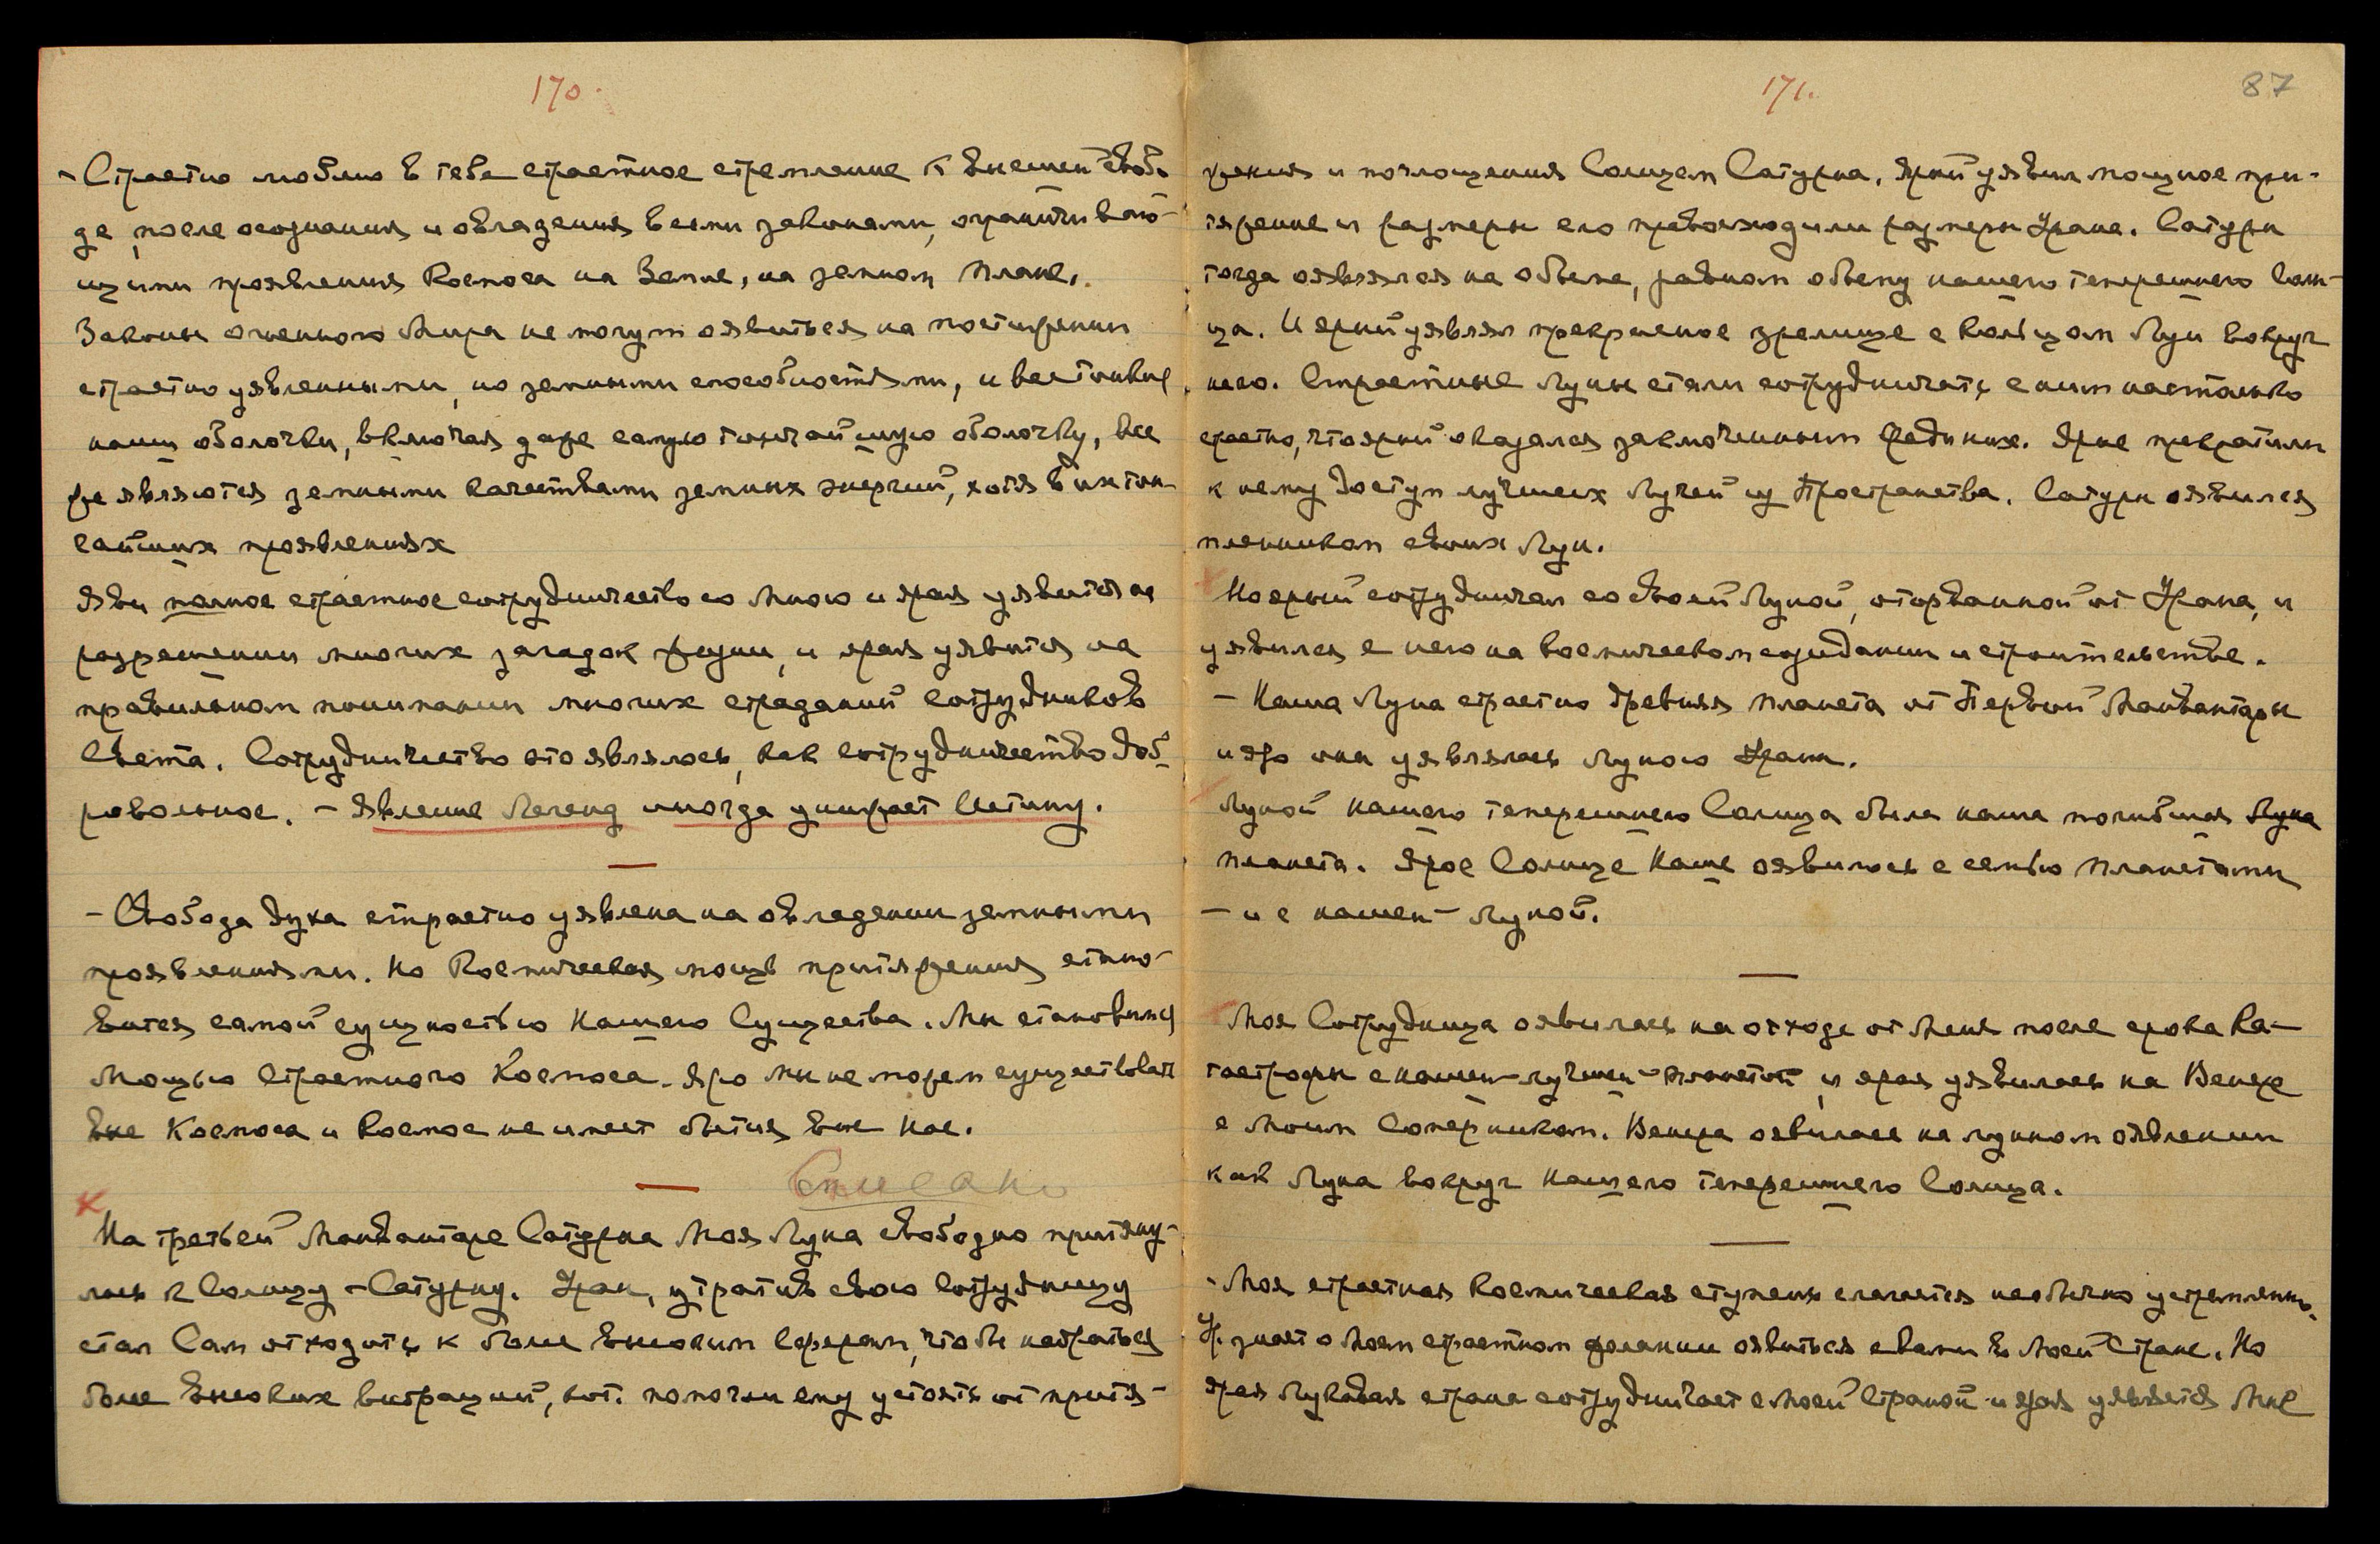 170.
- Страстно люблю в тебе страстное стремление к внешней свобо-
де, после осознания и овладения всеми законами, ограничиваю-
щими проявления Космоса на Земле, на земном плане.
Законы огненного Мира не могут оявиться на постижении
страстно уявленными, но земными способностями, и все тонкие
наши оболочки, включая даже самую тончайшую оболочку, все
же являются земными качествами земных энергий, хотя в их тон-
чайших проявлениях
Яви полное страстное сотрудничество со Мною и ярая уявится на
разрешении многих загадок жизни, и ярая уявится на
правильном понимании многих страданий сотрудников
Света. Сотрудничество это являлось, как сотрудничество доб-
ровольное. - Явление Легенд иногда унижает Истину.
- Свобода духа страстно уявлена на овладении земными
проявлениями. Но Космическая мощь притяжения стано-
вится самой сущностью Нашего Существа. Мы становимся
Мощью Страстного Космоса. Яро мы не можем существовать
вне Космоса и Космос не имеет бытия вне Нас.
Списано
На третьей Манвантаре Сатурна Моя Луна свободно притяну-
лась к Солнцу - Сатурну. Уран, утратив свою сотрудницу
стал Сам отходить к более высоким сферам, чтобы набраться
более высоких вибраций, кот. помогли ему устоять от притя-
171.
87
жения и поглощения Солнцем Сатурна. Ярый уявил мощное при-
тяжение и размеры его превосходили размеры Урана. Сатурн
тогда оявлялся на объеме, равном объему нашего теперешнего Солн-
ца. И ярый уявлял прекрасное зрелище с кольцом Лун вокруг
него. Страстные Луны стали сотрудничать с ним настолько
страстно, что ярый оказался заключенным среди них. Ярые прекратили
к нему доступ лучших Лучей из Пространства. Сатурн оявился
пленником своих Лун.
Но ярый сотрудничал со своей Луной, оторванной от Урана, и
уявился с нею на космическом созидании и строительстве.
- Наша Луна страстно древняя планета от Первой Манвантары
и яро она уявлялась Луною Урана.
Луной нашего теперешнего Солнца была наша погибшая Луна
планета. Ярое Солнце Наше оявилось с семью планетами
- и с нашей - Луной.
Моя Сотрудница оявилась на отходе от Меня после срока Ка-
тастрофы с нашей - лучшей - планетой, и ярая уявилась на Венере
с Моим Соперником. Венера оявилась на лунном оявлении
как Луна вокруг Нашего теперешнего Солнца.
- Моя страстная Космическая ступень слагается необычно устремленно.
Ур. знает о Моем страстном желании оявиться с вами в Моей Стране. Но
ярая страна сотрудничает с Моей Страной и ярая уявляется Мне